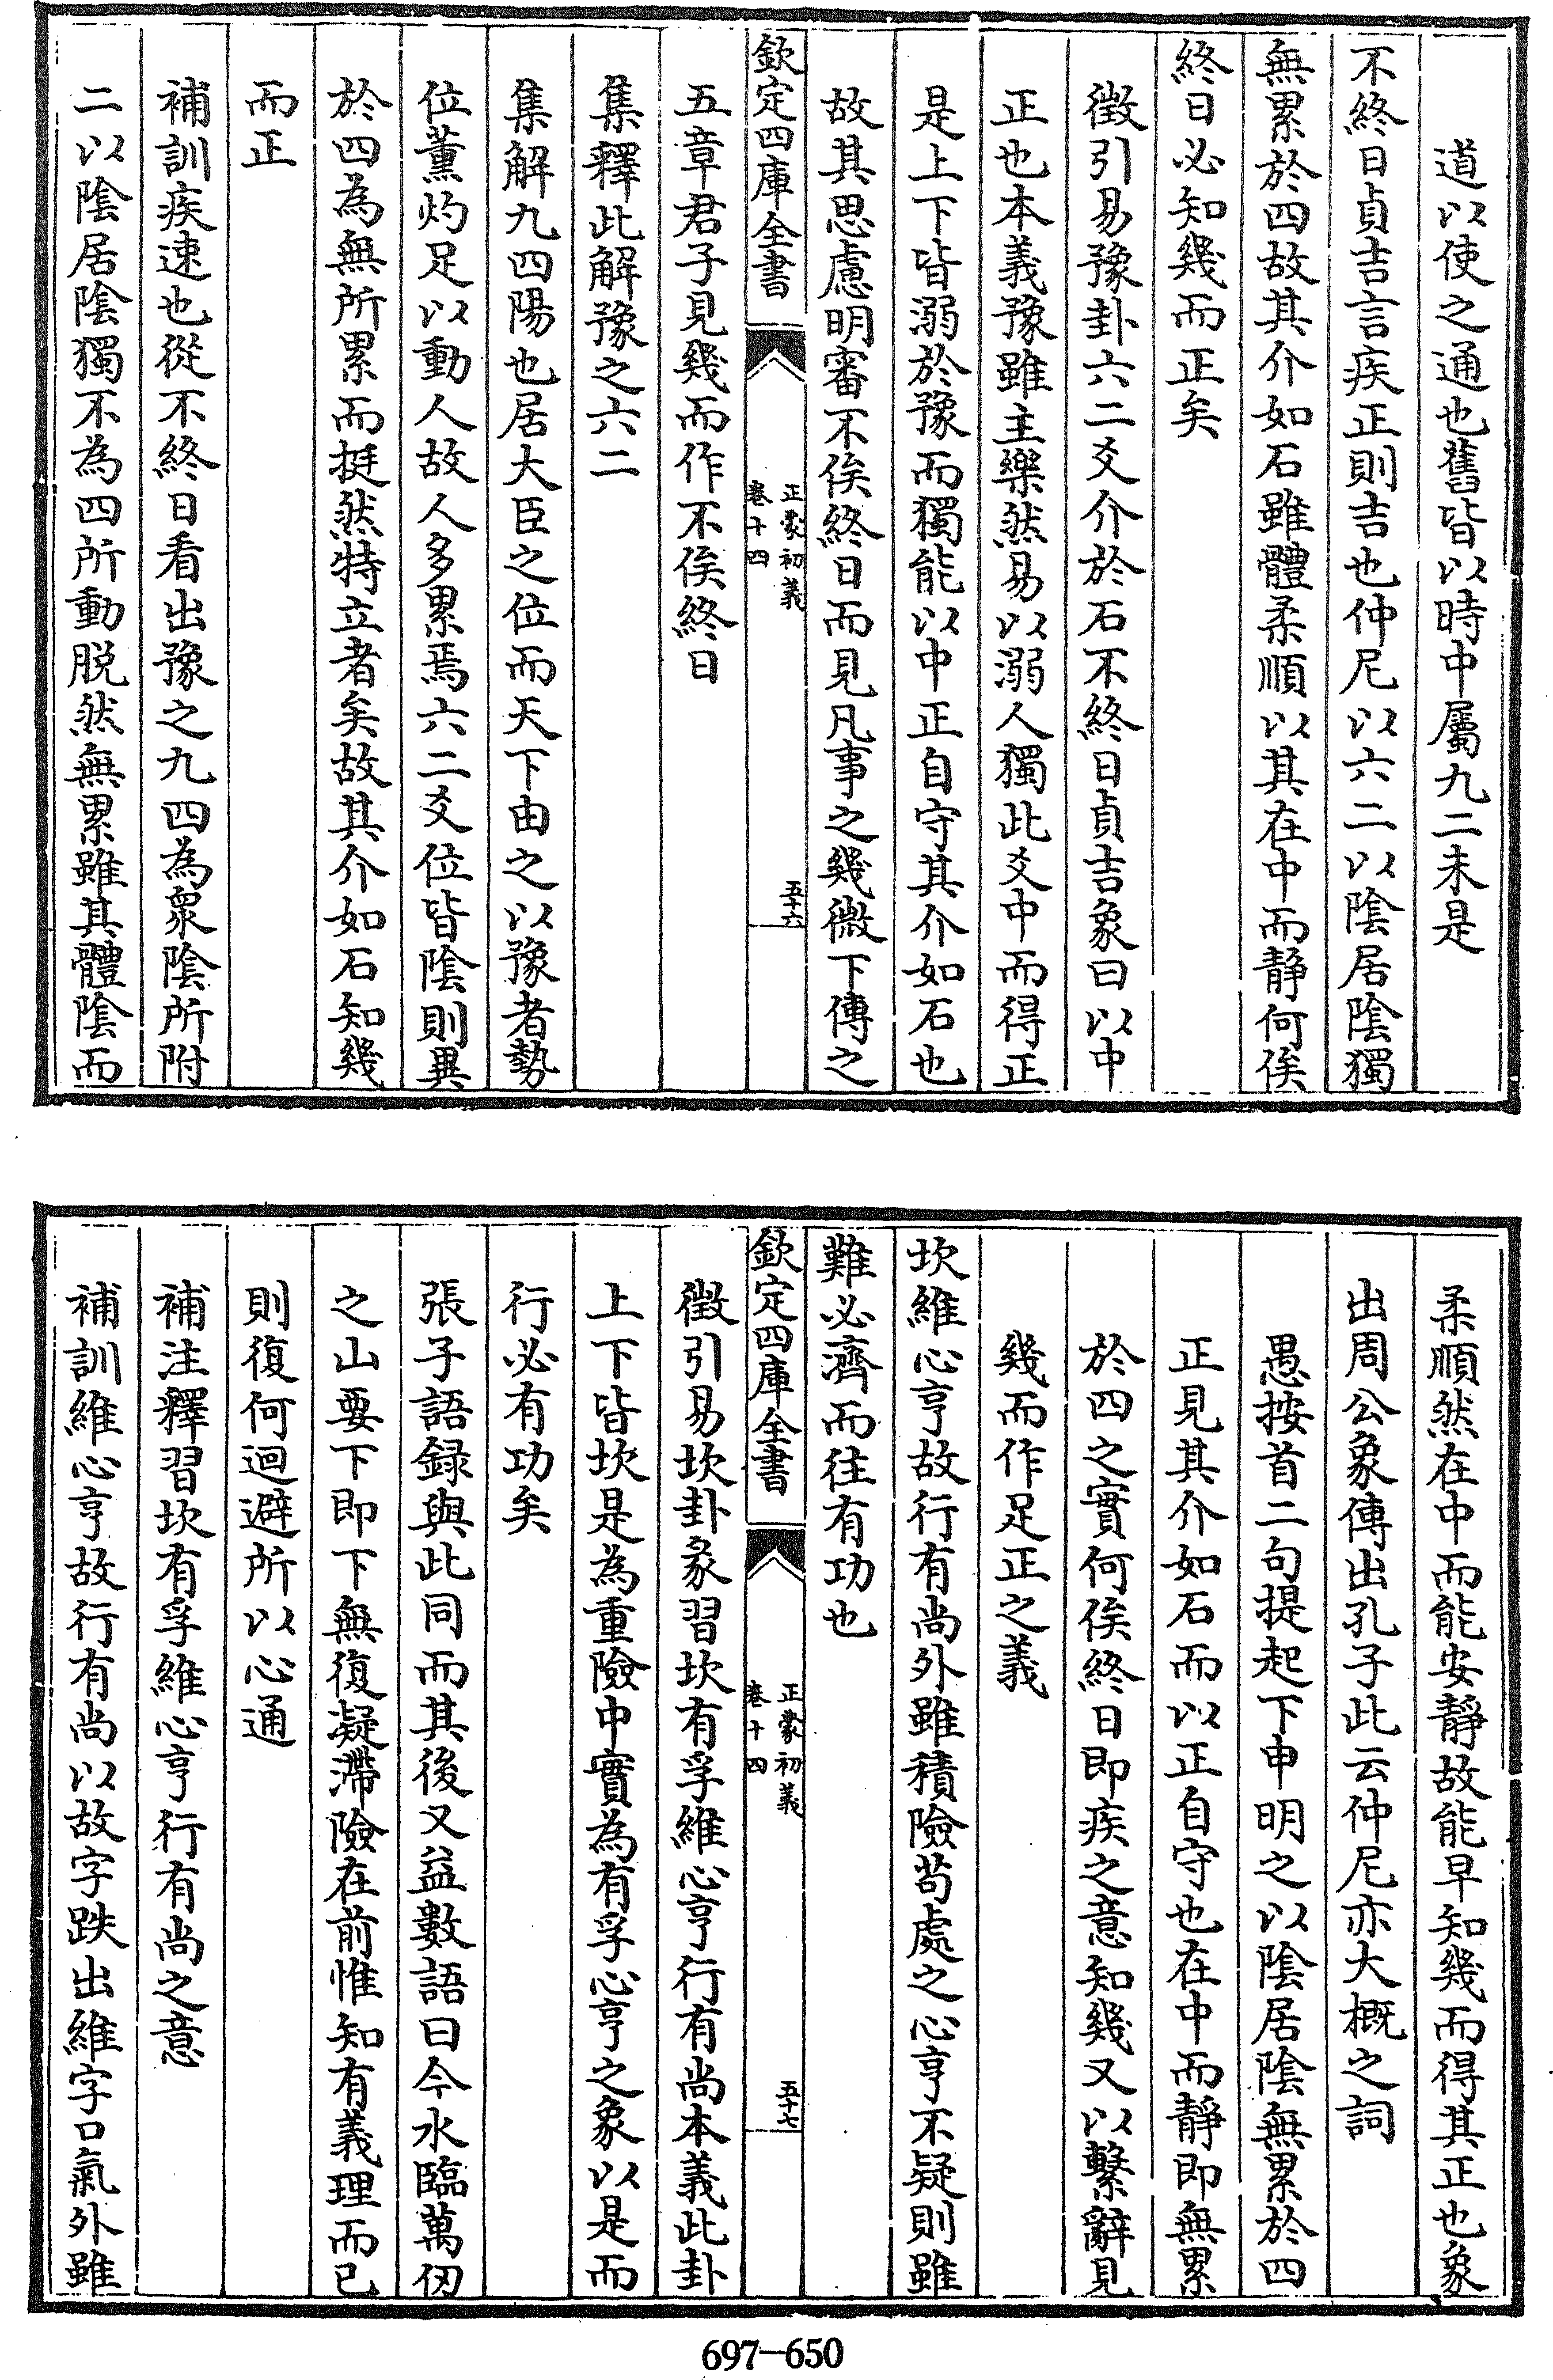 道以使之通也舊皆以時中屬九二未是
不終日貞吉言疾正則吉也仲尼以六二以陰居陰獨
無累於四故其介如石雖體柔順以其在中而静何俟
終日必知幾而正矣
徵引易豫卦六二爻介於石不終日貞吉象曰以中
正也本義豫雖主樂然易以溺人獨此爻中而得正
是上下皆溺於豫而獨能以中正自守其介如石也
故其思慮明審不俟終日而見凡事之幾微下傳之
欽定四庫全書
正蒙初義
卷十四
五十六
五章君子見幾而作不俟終日
集釋此解豫之六二
集解九四陽也居大臣之位而天下由之以豫者勢
位薰灼足以動人故人多累焉六二爻位皆陰則異
於四為無所累而挺然特立者矣故其介如石知幾
而正
補訓疾速也從不終日看出豫之九四為衆陰所附
二以陰居陰獨不為四所動脱然無累雖其體陰而
柔順然在中而能安靜故能早知幾而得其正也象
出周公象傳出孔子此云仲尼亦大概之詞
愚按首二句提起下申明之以陰居陰無累於四
正見其介如石而以正自守也在中而靜即無累
於四之實何俟終日即疾之意知幾又以繫辭見
幾而作足正之義
坎維心亨故行有尚外雖積險苟處之心亨不疑則雖
難必濟而往有功也
欽定四庫全書
正蒙初義
卷十四
五十七
徵引易坎卦彖習坎有孚維心亨行有尚本義此卦
上下皆坎是為重險中實為有孚心亨之象以是而
行必有功矣
張子語録與此同而其後又益數語曰今水臨萬仞
之山要下即下無復凝滯險在前惟知有義理而已
則復何迴避所以心通
補注釋習坎有孚維心亨行有尚之意
補訓維心亨故行有尚以故字跌出維字口氣外雖
697—650